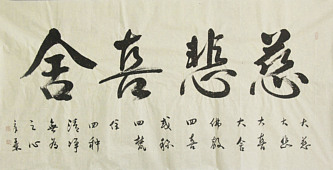 慈悲喜舍
大慈
大悲
大喜
大舍
佛教
四喜
或称
四梵
住
四种
清净
无为
之心